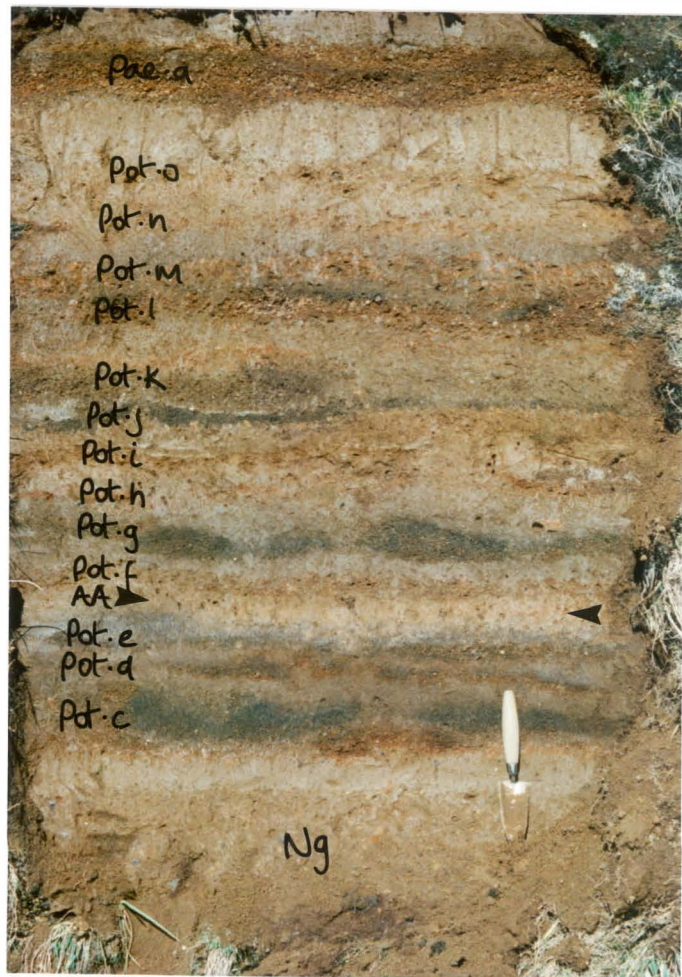 Pae.a
Pot.o
Pot.n
Pot.m
Pot.l
Pot.k
Pot.j
Pot.i
Pot.h
Pot.g
Pot.f
AA
Pot.e
Pot.d
Pot.c
Ng